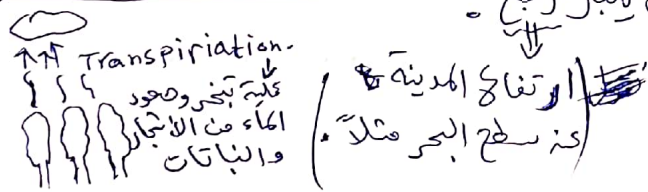 Transpiriation.
عملية تبخر وصعود
الماء من الأشجار
والنباتات
(ارتفاع المدينة
عن سطح البحر مثلاً.)